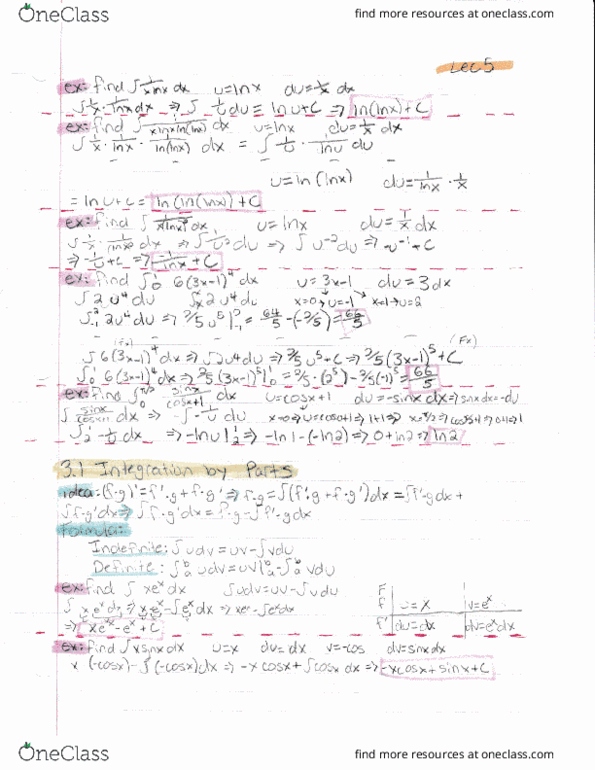 OneClass
find more resources at oneclass.com
Lec 5
ex: find ∫ 1/(xlnx) dx u=lnx du=1/x dx
∫ 1/x · 1/lnx dx ⇒ ∫ 1/u du = ln u+C ⇒ ln(lnx)+C
ex: find ∫ 1/(xlnxln(lnx)) dx u=lnx du=1/x dx
∫ 1/x · 1/lnx · 1/ln(lnx) dx = ∫ 1/u · 1/lnu du
u=ln(lnx) du=1/lnx · 1/x
= ln u+C = ln(ln(lnx))+C
ex: find u=lnx du=1/x dx
⇒ ∫ 1/u² du ⇒ ∫u⁻²du ⇒ -u⁻¹+C
⇒ -1/u+C ⇒ -1/lnx+C
ex: find ∫₀¹ 6(3x-1)⁴ dx u=3x-1 du=3dx
∫2u⁴du ∫2u⁴du x=0→u=-1 x=1→u=2
2u⁴du ⇒ 2/5 u⁵ = 64/5 -(-2/5) = 66/5
(fx) (Fx)
∫6(3x-1)⁴dx ⇒ ∫2u4du ⇒ 2/5 u⁵+C ⇒ 2/5(3x-1)⁵+C
∫₀¹ 6(3x-1)⁴dx ⇒ 2/5(3x-1)⁵|₀¹ = 2/5·(2⁵)-2/5(-1)⁵ = 66/5
ex: find ∫₀^π/2 sinx/(cosx+1) dx u=cosx+1 du=-sinx dx ⇒ sinxdx=-du
∫ sinx/(cosx+1) dx ⇒ ∫ -1/u du x=0→u=cos0+1⇒1+1=2
∫₂¹ -1/u du ⇒ -lnu|₂¹ ⇒ -ln1-(-ln2) ⇒ 0+ln2 ⇒ ln2
3.1 Integration by Parts
idea: (f·g)'=f'·g+f·g' ⇒ f·g=∫(f'·g+f·g')dx=∫f'·gdx+
∫f·g'dx ⇒ ∫f·g'dx=f·g-∫f'·gdx
Formula:
Indefinite: ∫udv=uv-∫vdu
Definite: ∫ₐᵇ udv=uv|ₐᵇ-∫ₐᵇ vdu
ex: find ∫ xeˣdx ∫udv=uv-∫vdu
f u=x v=eˣ
∫ xeˣdx ⇒ xeˣ-∫eˣdx ⇒ xeˣ-∫eˣdx
f' du=dx dv=eˣdx
⇒ xeˣ-eˣ+C
ex: find ∫xsinxdx u=x du=dx v=-cos dv=sinxdx
x(-cosx)-∫(-cosx)dx ⇒ -xcosx+∫cosxdx ⇒ -xcosx+sinx+C
OneClass
find more resources at oneclass.com